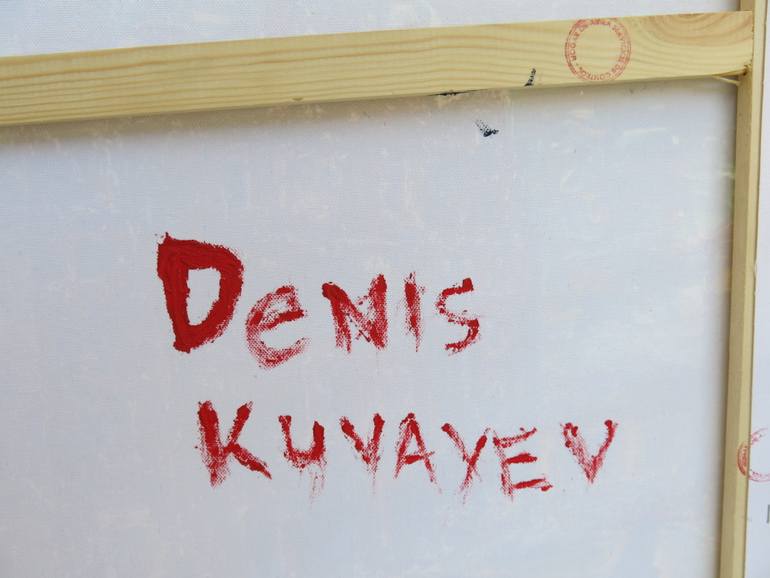 DeNIS
KUVAYEV